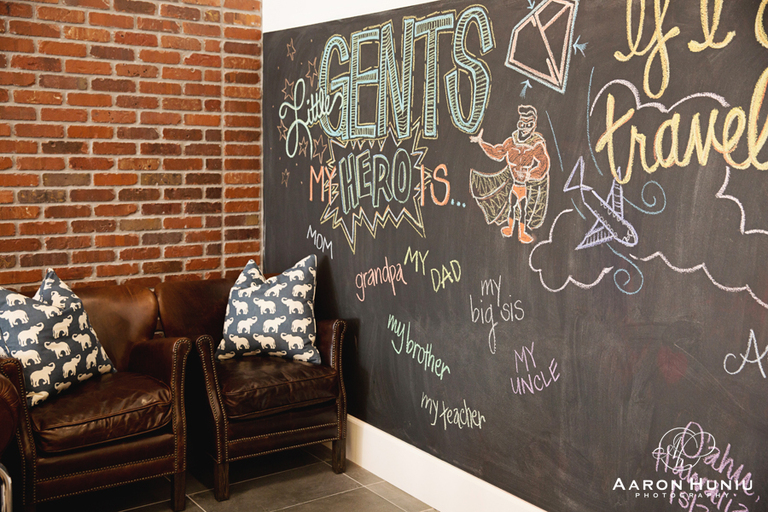 Little GENTS
MY HERO IS...
MOM
grandpa
MY DAD
my big sis
my brother
MY UNCLE
my teacher
travel
AARON HUNIU
PHOTOGRAPHY